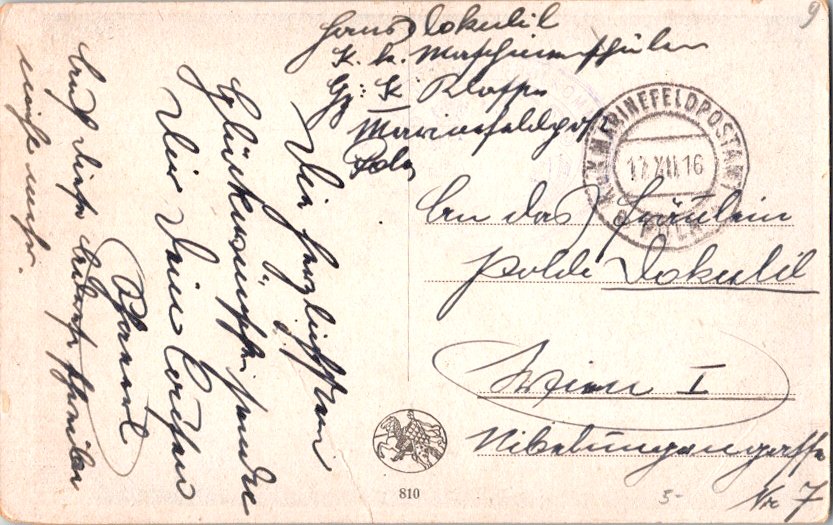 Hans Dokulil
K. k. Maschinenschüler
K. Klasse
Marinefeldpost
Pola
K.u.K. MARINEFELDPOSTAMT
17 XII 16
POLA
An das Fräulein
Polde Dokulil
Wien I
Nibelungengasse
Nr 7
Die herzlichsten
Glückwünsche sendet
Dir Dein
Auf diese schreiben
mehr.
810
9